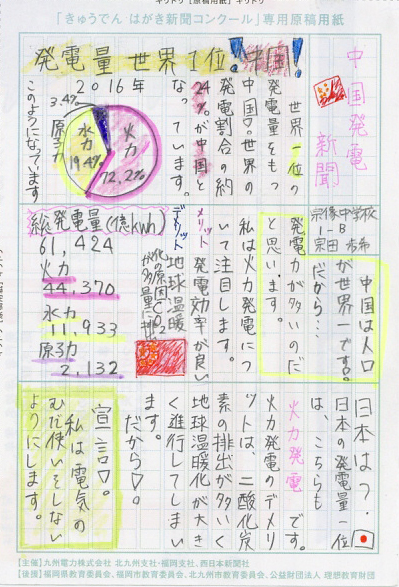 「きゅうでん はがき新聞コンクール」専用原稿用紙
中国発電
新聞
宗像中学校
1-B
発電量 世界1位!中国!
世界一位の
発電量をもつ
中国▽。世界の
発電割合の約
24%が中国と
なっています。
2016年
火力
72.2%
水力
19.4%
原子力
3.4%
このようになっています
中国は人口
が世界一です。
だから…
発電力が多いのだ
と思います。
私は火力発電につ
いて注目します。
メリット
発電効率が良い
デメリット
地球温暖
化の原因、CO2
が多量に排
総発電量(億kwh)
61,424
火力
44,370
水力
11,933
原子力
2,132
日本はっ・
日本の発電量一位
は、こちらも
火力発電です。
火力発電のデメリ
ットは、二酸化炭
素の排出が多いく
地球温暖化が大き
く進行してしまい
ます。
だから▽。
宣言▽。
私は電気の
むだ使いをしない
ようにします。
【主催】九州電力株式会社 北九州支社・福岡支社、西日本新聞社
【後援】福岡県教育委員会、福岡市教育委員会、北九州市教育委員会、公益財団法人 理想教育財団